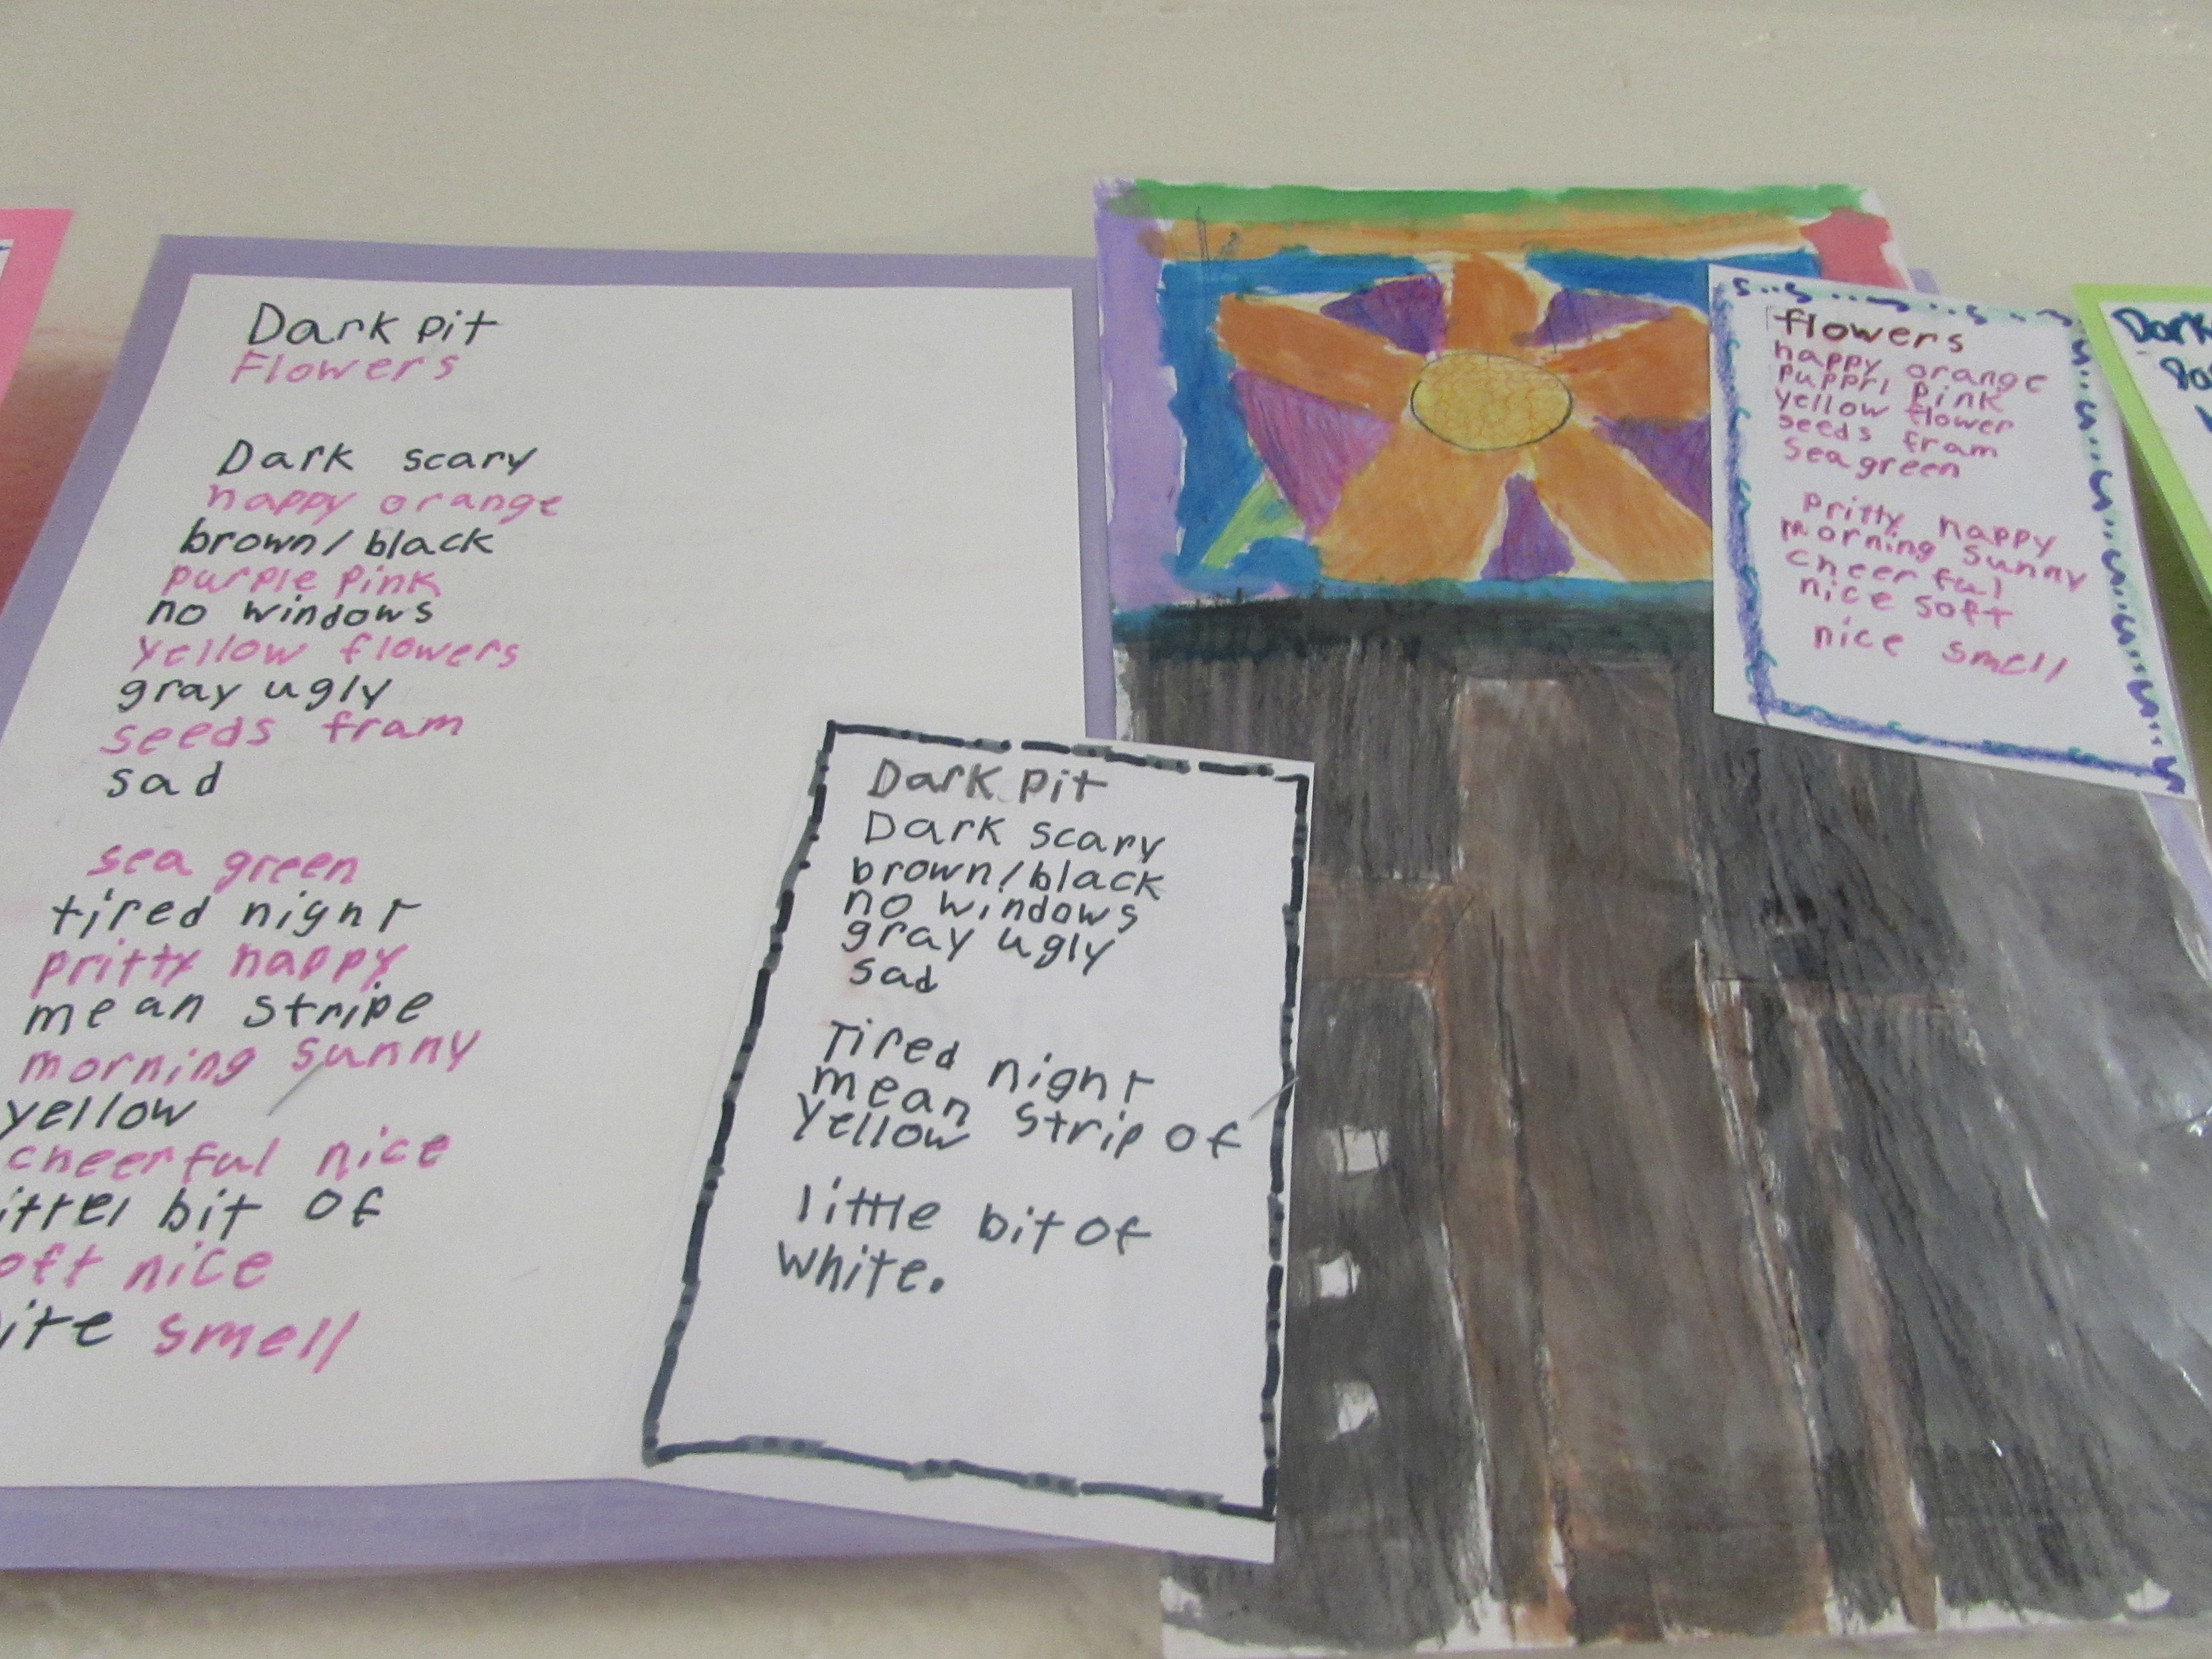 Dark pit
Flowers
Dark scary
happy orange
brown/black
purple pink
no windows
yellow flowers
gray ugly
seeds fram
sad
sea green
tired night
pritty happy
mean stripe
morning sunny
yellow
cheerful nice
bit of
nice
smell
Dark pit
Dark scary
brown/black
no windows
gray ugly
sad
Tired night
mean
yellow strip of
little bit of
white.
flowers
happy orange
pink
yellow flower
seeds fram
sea green
pritty happy
morning sunny
cheerful
nice soft
nice smell
Dark